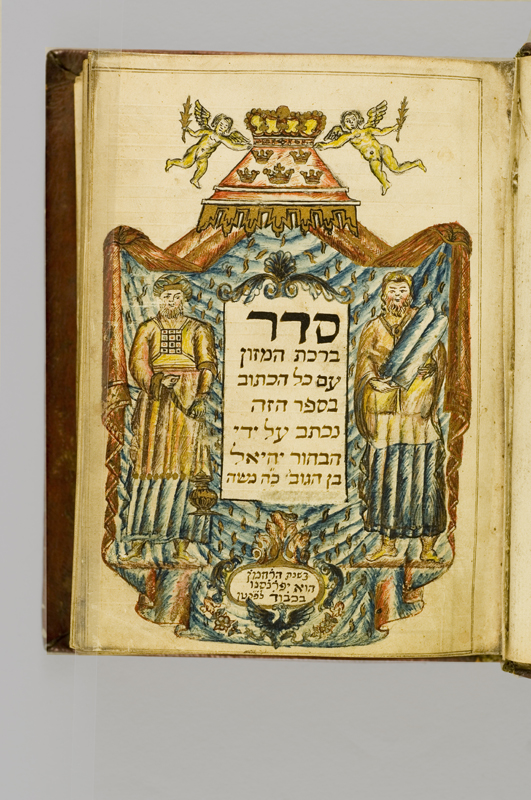 סדר
ברכת המזון
עם כל הכתוב
בספר הזה
נכתב על ידי
הבחור יחיאל
בן הגוב׳ כ״ה משה
בשנת הרחמן
הוא יפרנסנו
בכבוד לפ״קטן